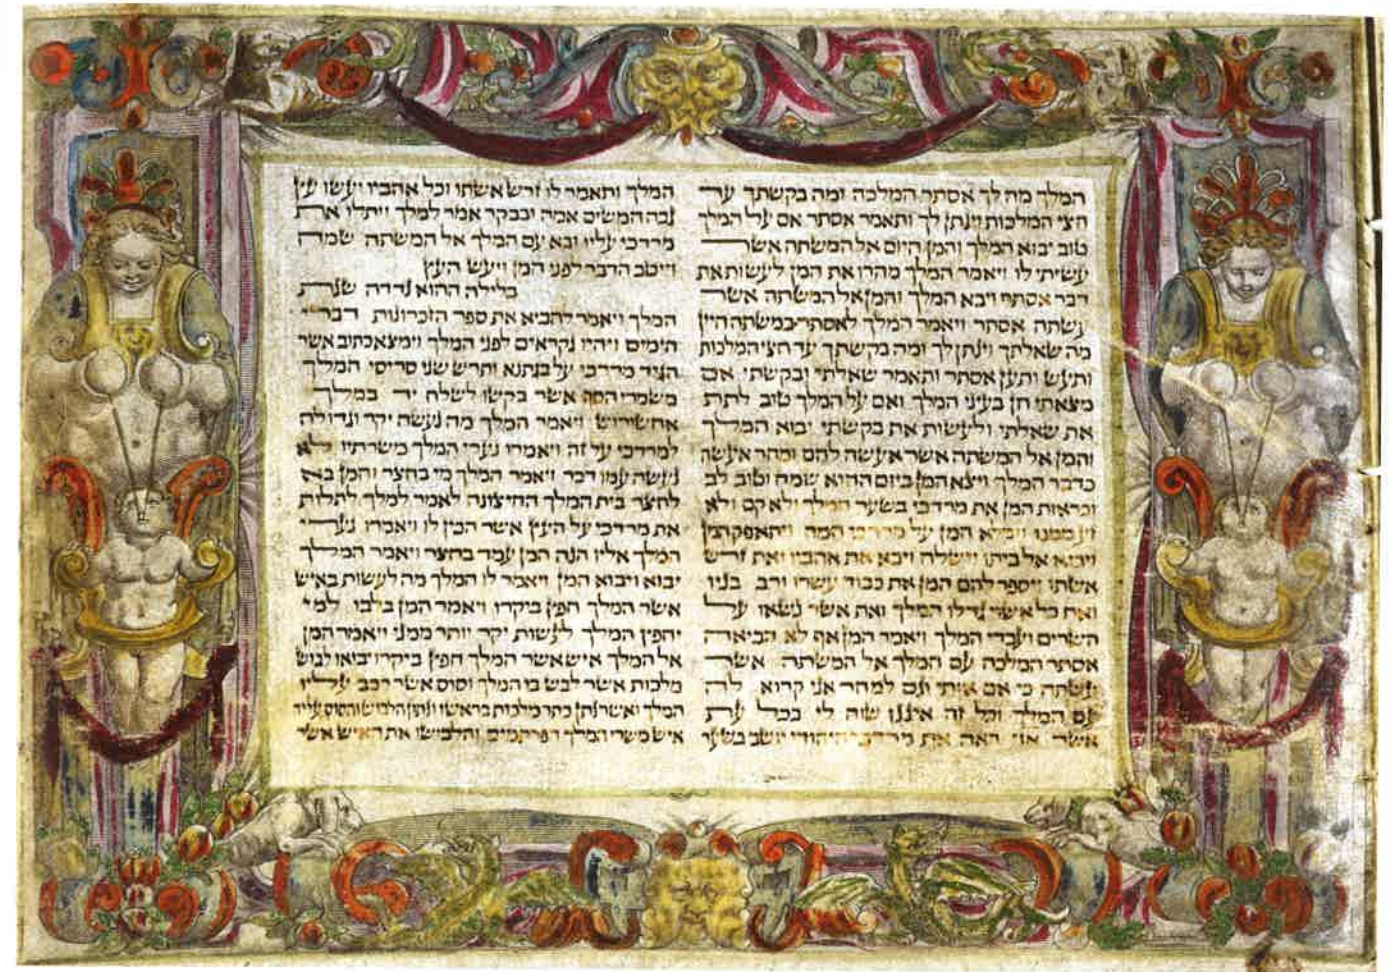 המלך מה לך אסתר המלכה ומה בקשתך עד
חצי המלכות וינתן לך ותאמר אסתר אם על המלך
טוב יבוא המלך והמן היום אל המשתה אשר
עשיתי לו ויאמר המלך מהרו את המן לעשות את
דבר אסתר ויבא המלך והמן אל המשתה אשר
עשתה אסתר ויאמר המלך לאסתר במשתה היין
מה שאלתך וינתן לך ומה בקשתך עד חצי המלכות
ותעש ותען אסתר ותאמר שאלתי ובקשתי אם
מצאתי חן בעיני המלך ואם על המלך טוב לתת
את שאלתי ולעשות את בקשתי יבוא המלך
והמן אל המשתה אשר אעשה להם ומחר אעשה
כדבר המלך ויצא המן ביום ההוא שמח וטוב לב
וכראות המן את מרדכי בשער המלך ולא קם ולא
זע ממנו וימלא המן על מרדכי חמה ויתאפק המן
ויבוא אל ביתו וישלח ויבא את אהביו ואת זרש
אשתו ויספר להם המן את כבוד עשרו ורב בניו
ואת כל אשר גדלו המלך ואת אשר נשאו על
השרים ועבדי המלך ויאמר המן אף לא הביאה
אסתר המלכה עם המלך אל המשתה אשר
עשתה כי אם אותי וגם למחר אני קרוא לה
עם המלך וכל זה איננו שוה לי בכל עת
אשר אני ראה את מרדכי היהודי יושב בשער
המלך ותאמר לו זרש אשתו וכל אהביו יעשו עץ
גבה חמשים אמה ובבקר אמר למלך ויתלו את
מרדכי עליו ובא עם המלך אל המשתה שמח
וייטב הדבר לפני המן ויעש העץ
בלילה ההוא נדדה שנת
המלך ויאמר להביא את ספר הזכרונות דברי
הימים ויהיו נקראים לפני המלך וימצא כתוב אשר
הגיד מרדכי על בגתנא ותרש שני סריסי המלך
משמרי הסף אשר בקשו לשלח יד במלך
אחשורוש ויאמר המלך מה נעשה יקר וגדולה
למרדכי על זה ויאמרו נערי המלך משרתיו לא
נעשה עמו דבר ויאמר המלך מי בחצר והמן בא
לחצר בית המלך החיצונה לאמר למלך לתלות
את מרדכי על העץ אשר הכין לו ויאמרו נערי
המלך אליו הנה המן עמד בחצר ויאמר המלך
יבוא ויבוא המן ויאמר לו המלך מה לעשות באיש
אשר המלך חפץ ביקרו ויאמר המן בלבו למי
יחפץ המלך לעשות יקר יותר ממני ויאמר המן
אל המלך איש אשר המלך חפץ ביקרו יביאו לבוש
מלכות אשר לבש בו המלך וסוס אשר רכב עליו
המלך ואשר נתן כתר מלכות בראשו ונתון הלבוש והסוס על יד
איש משרי המלך הפרתמים והלבישו את האיש אשר